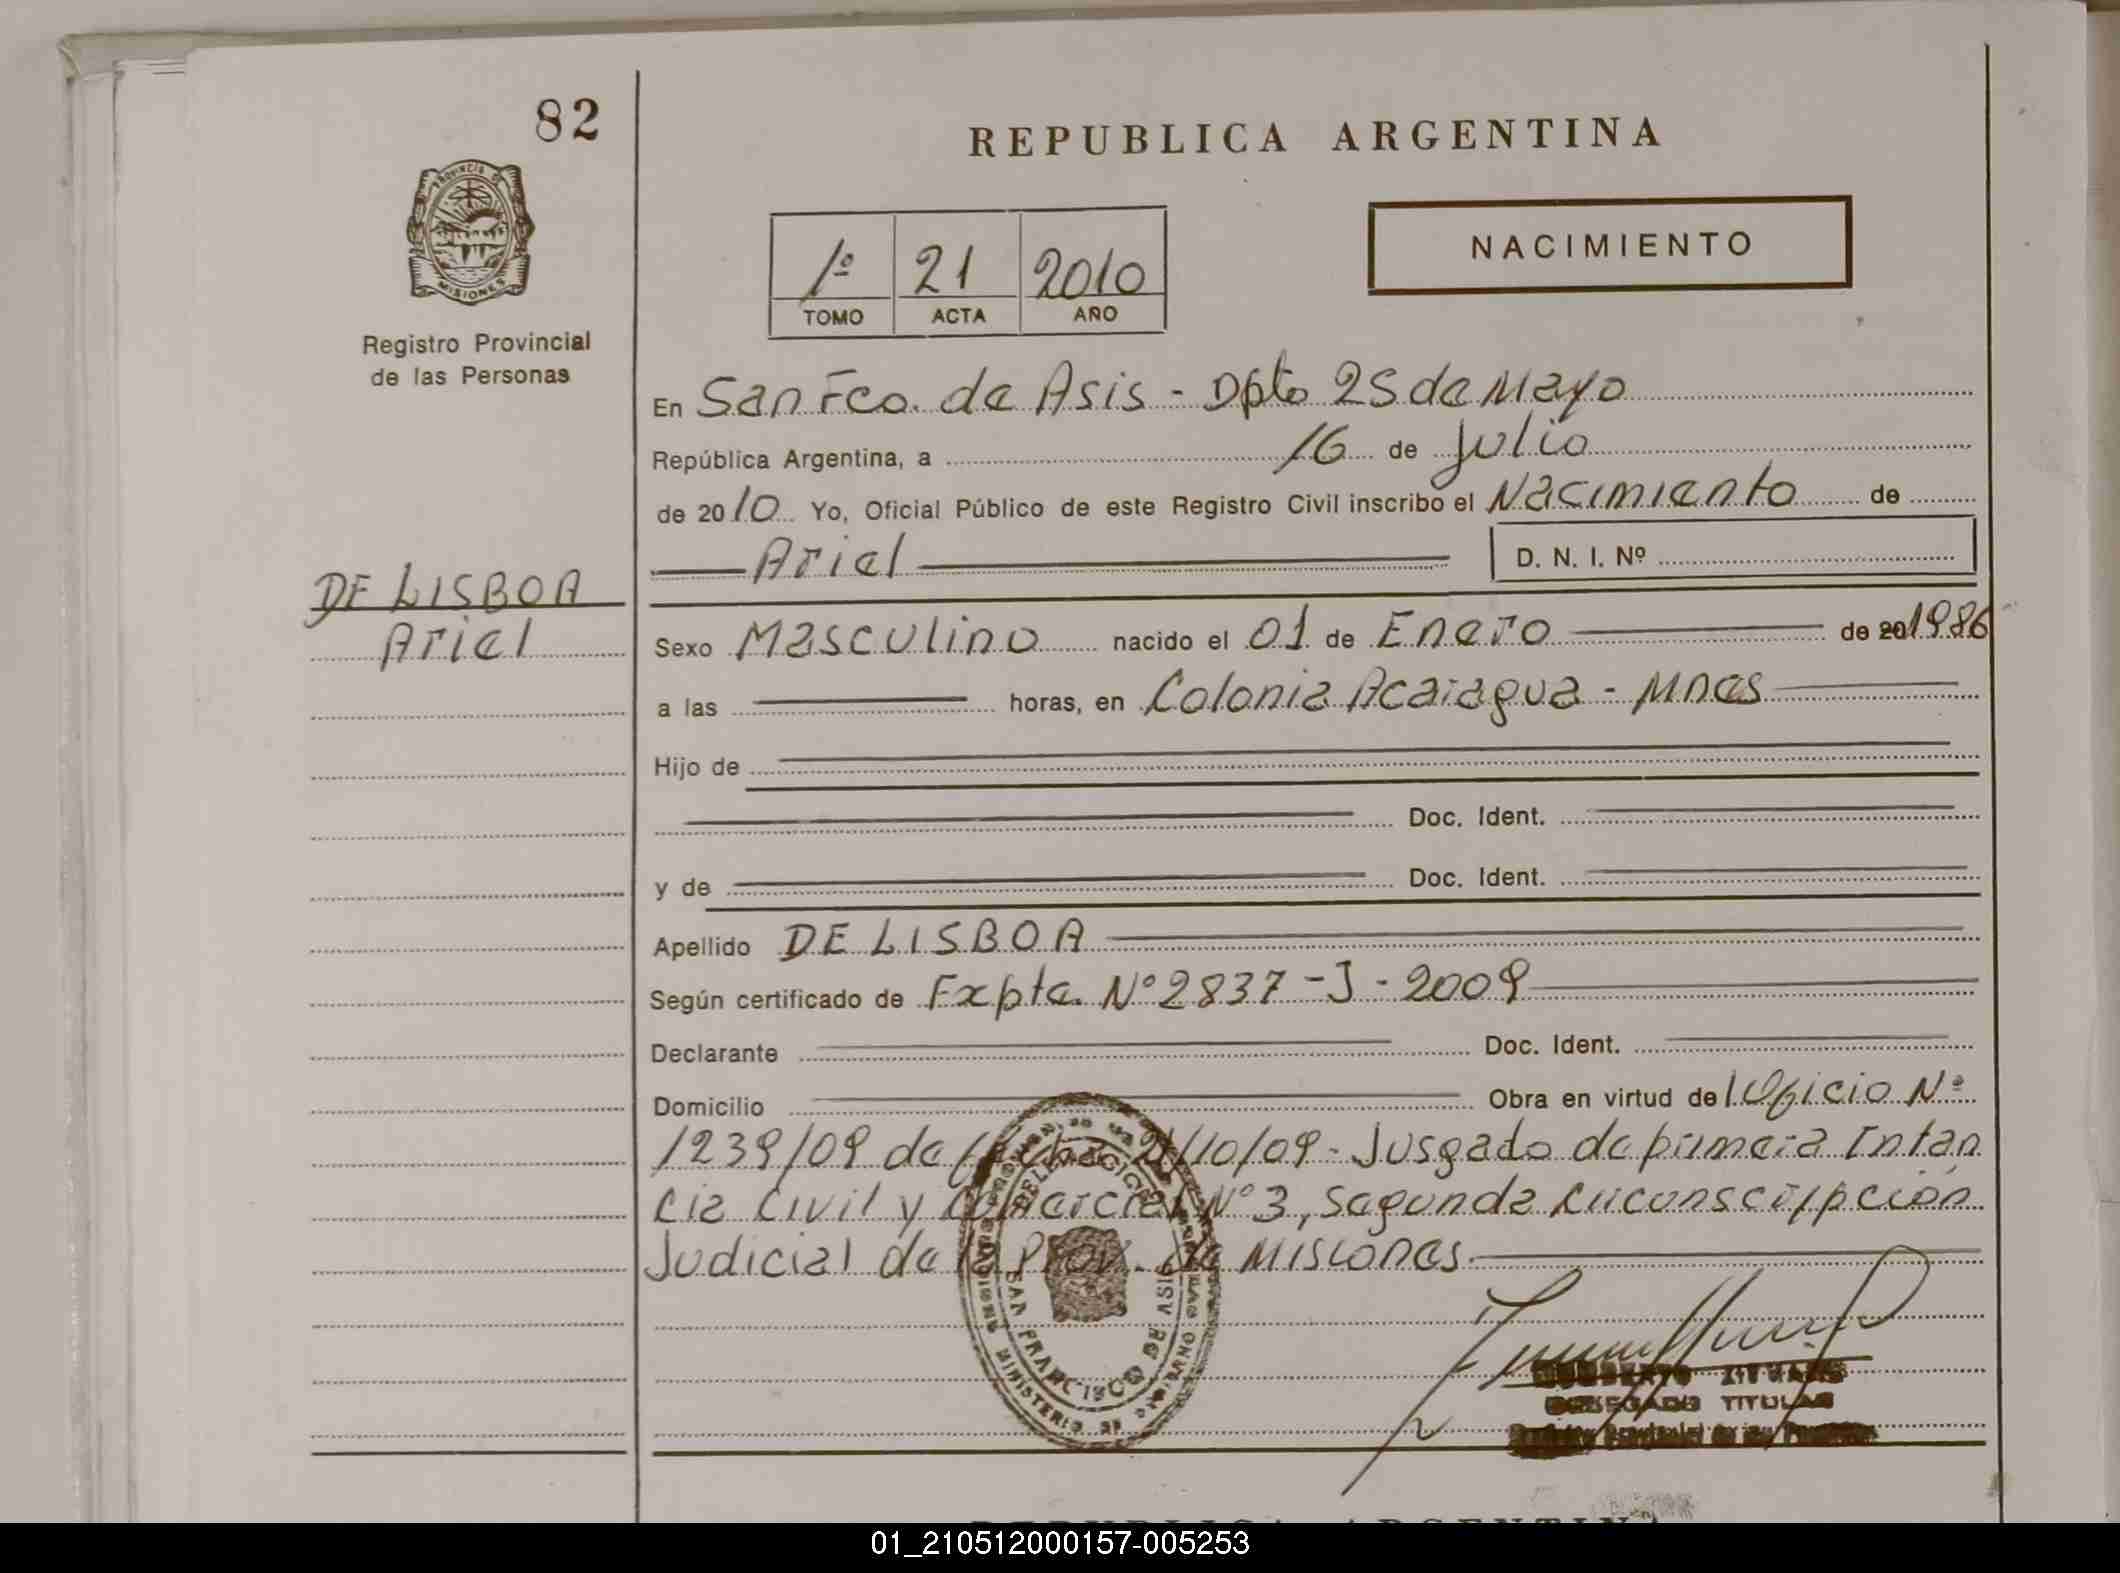 82
REPUBLICA ARGENTINA
PROVINCIA DE
MISIONES
Registro Provincial
de las Personas
1º 21 2010
TOMO ACTA AÑO
NACIMIENTO
En San Fco. de Asis - Dpto 25 de Mayo
República Argentina, a 16 de Julio
de 2010 Yo, Oficial Público de este Registro Civil inscribo el Nacimiento de
Ariel D. N. I. Nº
DE LISBOA
Ariel
Sexo Masculino nacido el 01 de Enero de 20 1986
a las horas, en Colonia Acaragua - Mnes
Hijo de
Doc. Ident.
y de Doc. Ident.
Apellido DE LISBOA
Según certificado de Expte. Nº 2837 - J - 2009
Declarante Doc. Ident.
Domicilio Obra en virtud del Oficio Nº
1239/09 de fecha 21/10/09 - Jusgado de primera Intan
cia Civil y Comercial Nº 3, Segunda Circunscripción
Judicial de la Prov. de Misiones.
SAN FRANCISCO DE ASIS
MINISTERIO DE
DELEGADO TITULAR
REPUBLICA ARGENTINA
01_210512000157-005253